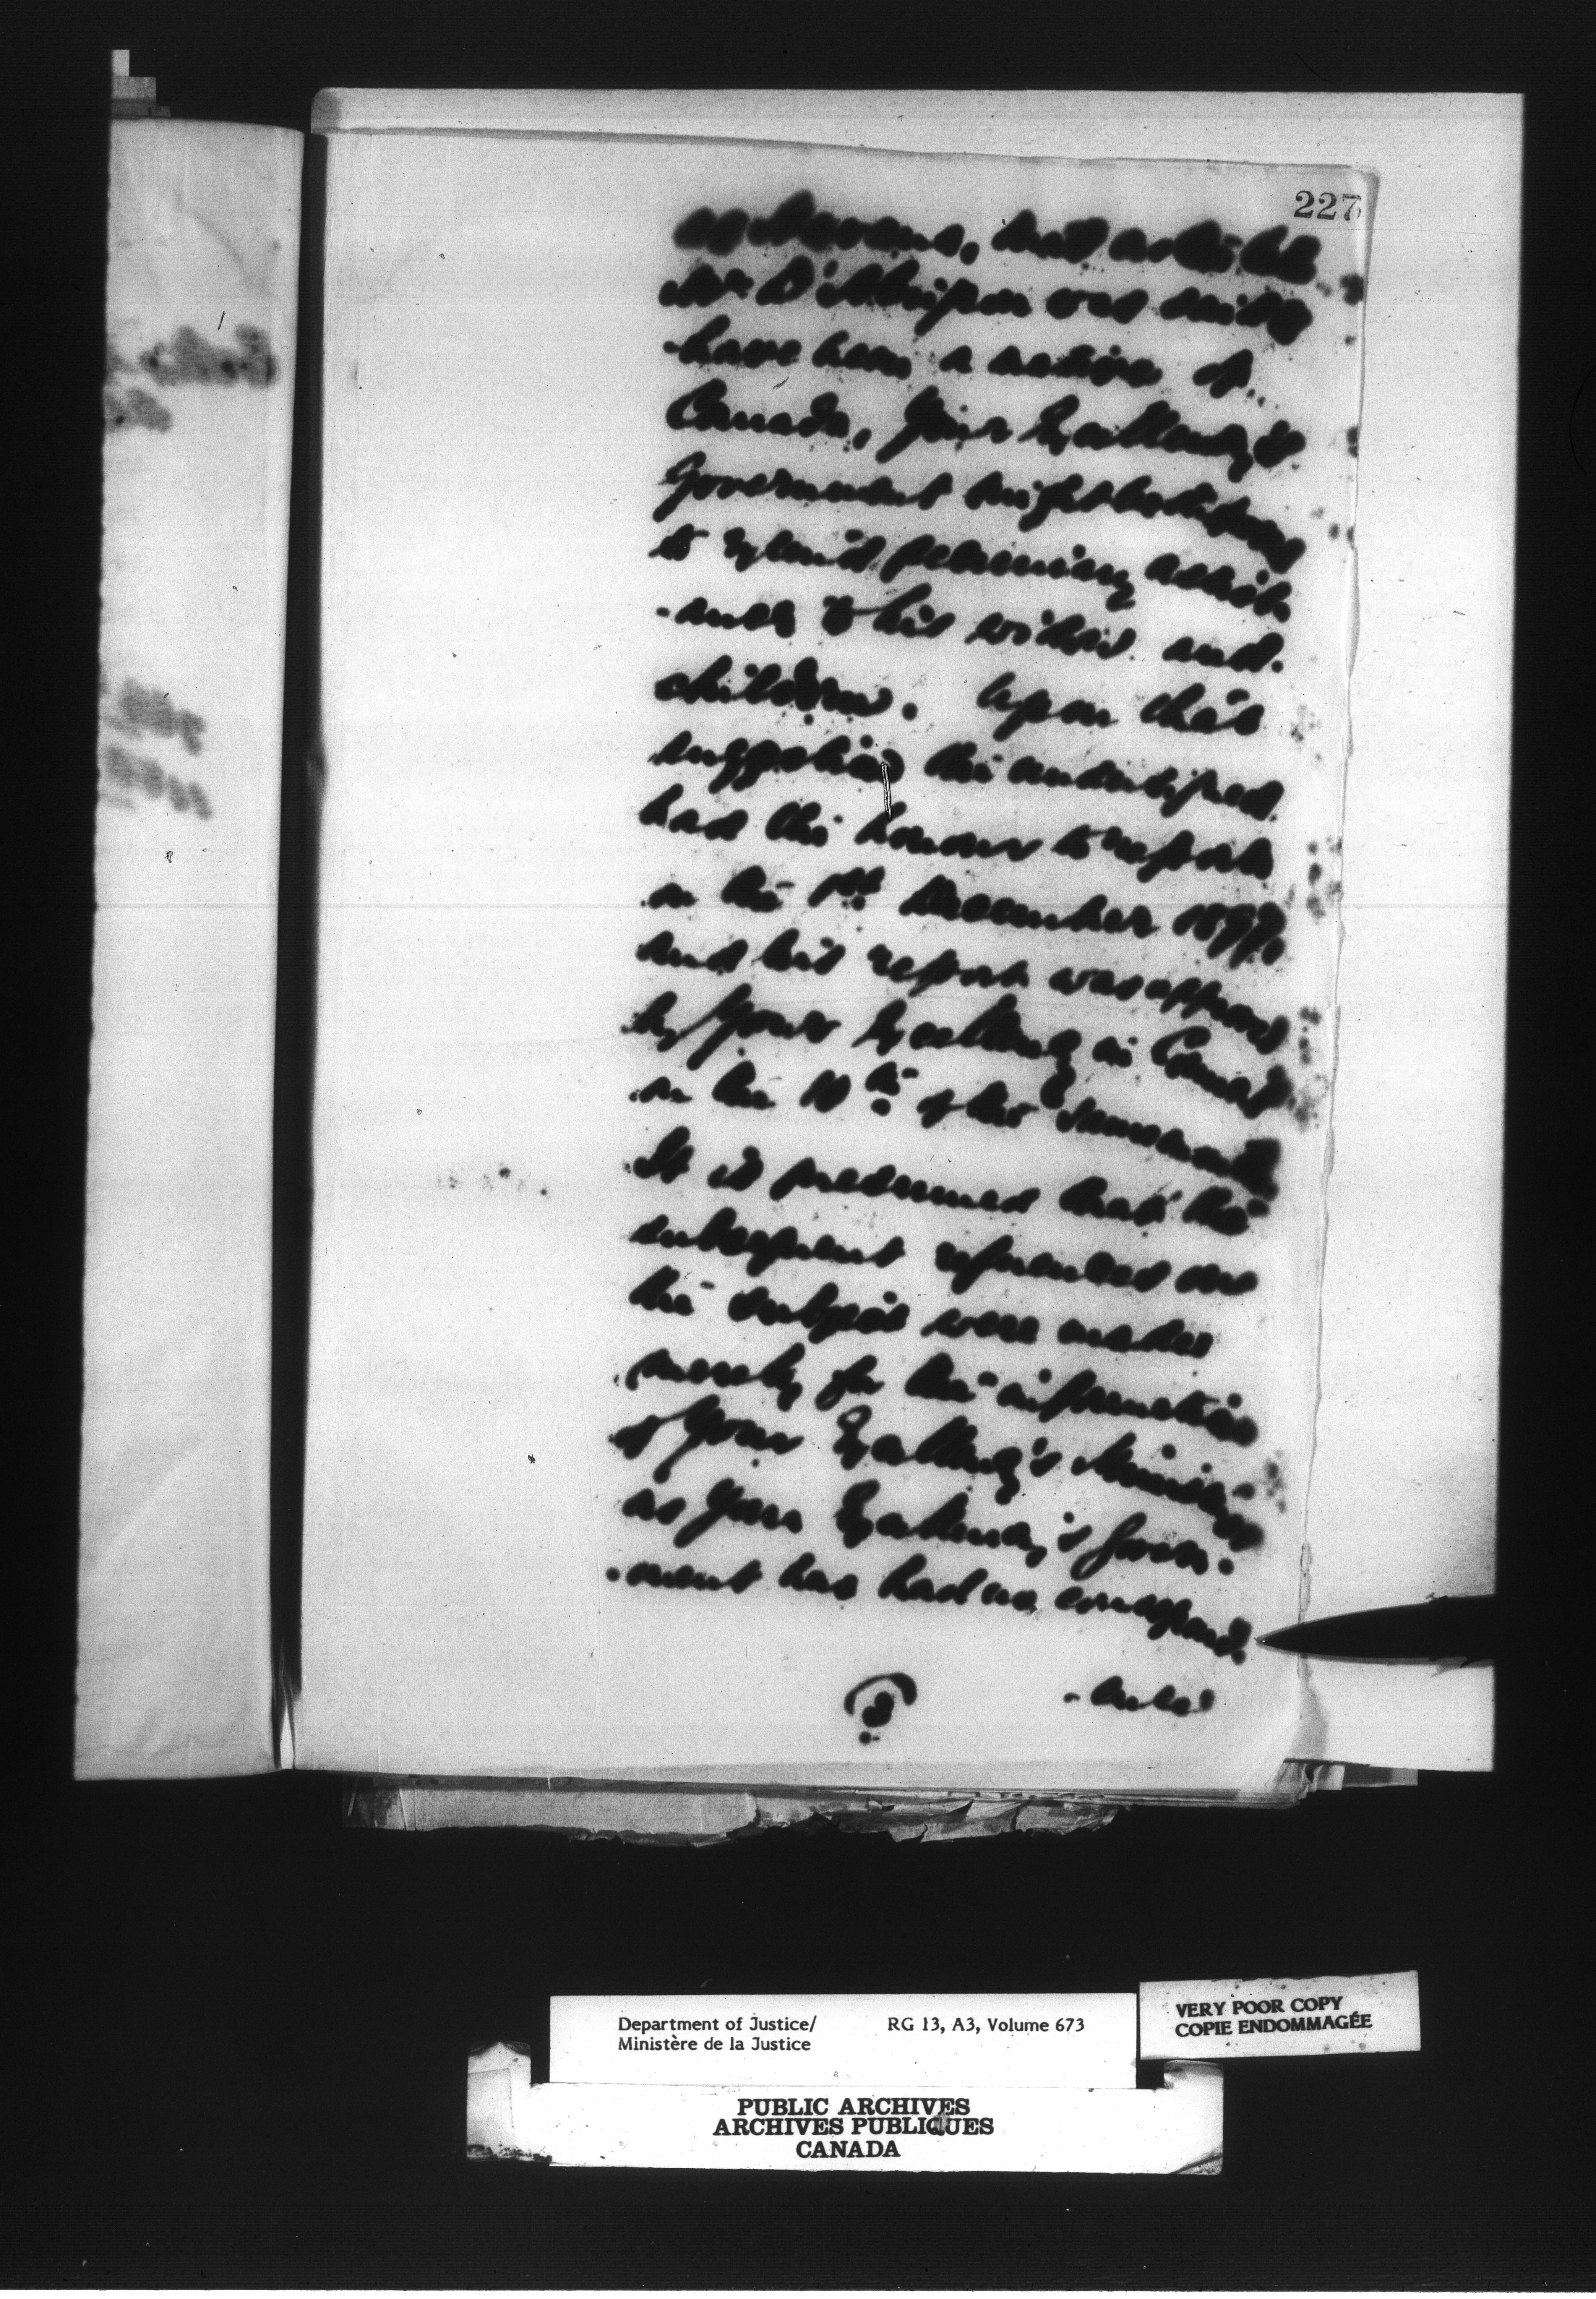 227
at Havana, that as the late
Mr D'Abrigeon was said to
have been a native of
Canada, Your Excellency's
Government might be disposed
to extend pecuniary assist-
-ance to his widow and
children. Upon this
suggestion the undersigned
had the honour to report
on the 1st December 1897,
and his report was approved
by Your Excellency in Council
on the 10th of the same month.
It is presumed that the
subsequent references on
the subject were made
merely for the information
of Your Excellency's Ministers
as Your Excellency's Govern-
-ment has had no correspond-
-ence
Department of Justice/
Ministère de la Justice
RG 13, A3, Volume 673
VERY POOR COPY
COPIE ENDOMMAGÉE
PUBLIC ARCHIVES
ARCHIVES PUBLIQUES
CANADA